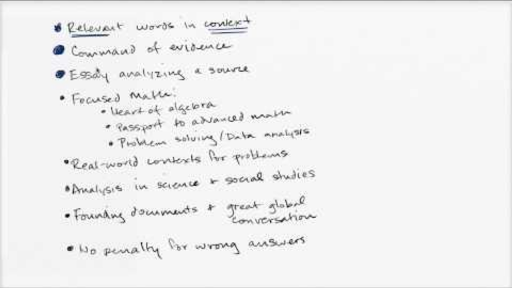 • Relevant words in context
• Command of evidence
• Essay analyzing a source
• Focused Math:
• Heart of algebra
• Passport to advanced math
• Problem solving/Data analysis
• Real-world contexts for problems
• Analysis in science + social studies
• Founding documents + great global
conversation
• No penalty for wrong answers